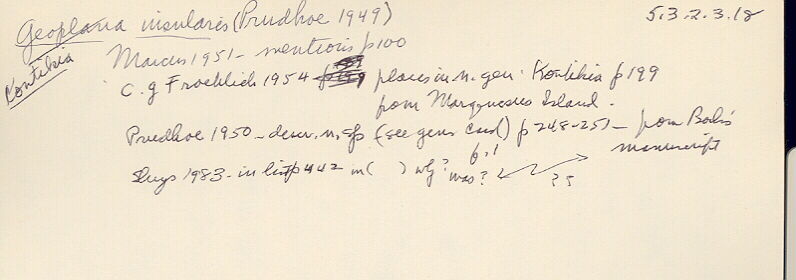 Geoplana insularis (Prudhoe 1949)
5.3.2.3.18
Kontikia
Marcus 1951 - mentions p100
C.g Froehlich 1954 p199 places in n.gen. Kontikia p199
from Marquesas Island.
Prudhoe 1950 - descr. n.sp (see genus card) p 248-251 - from Bock's
manuscript
p.1
Sluys 1983 - in list p442 in ( ) why?
was?
?5